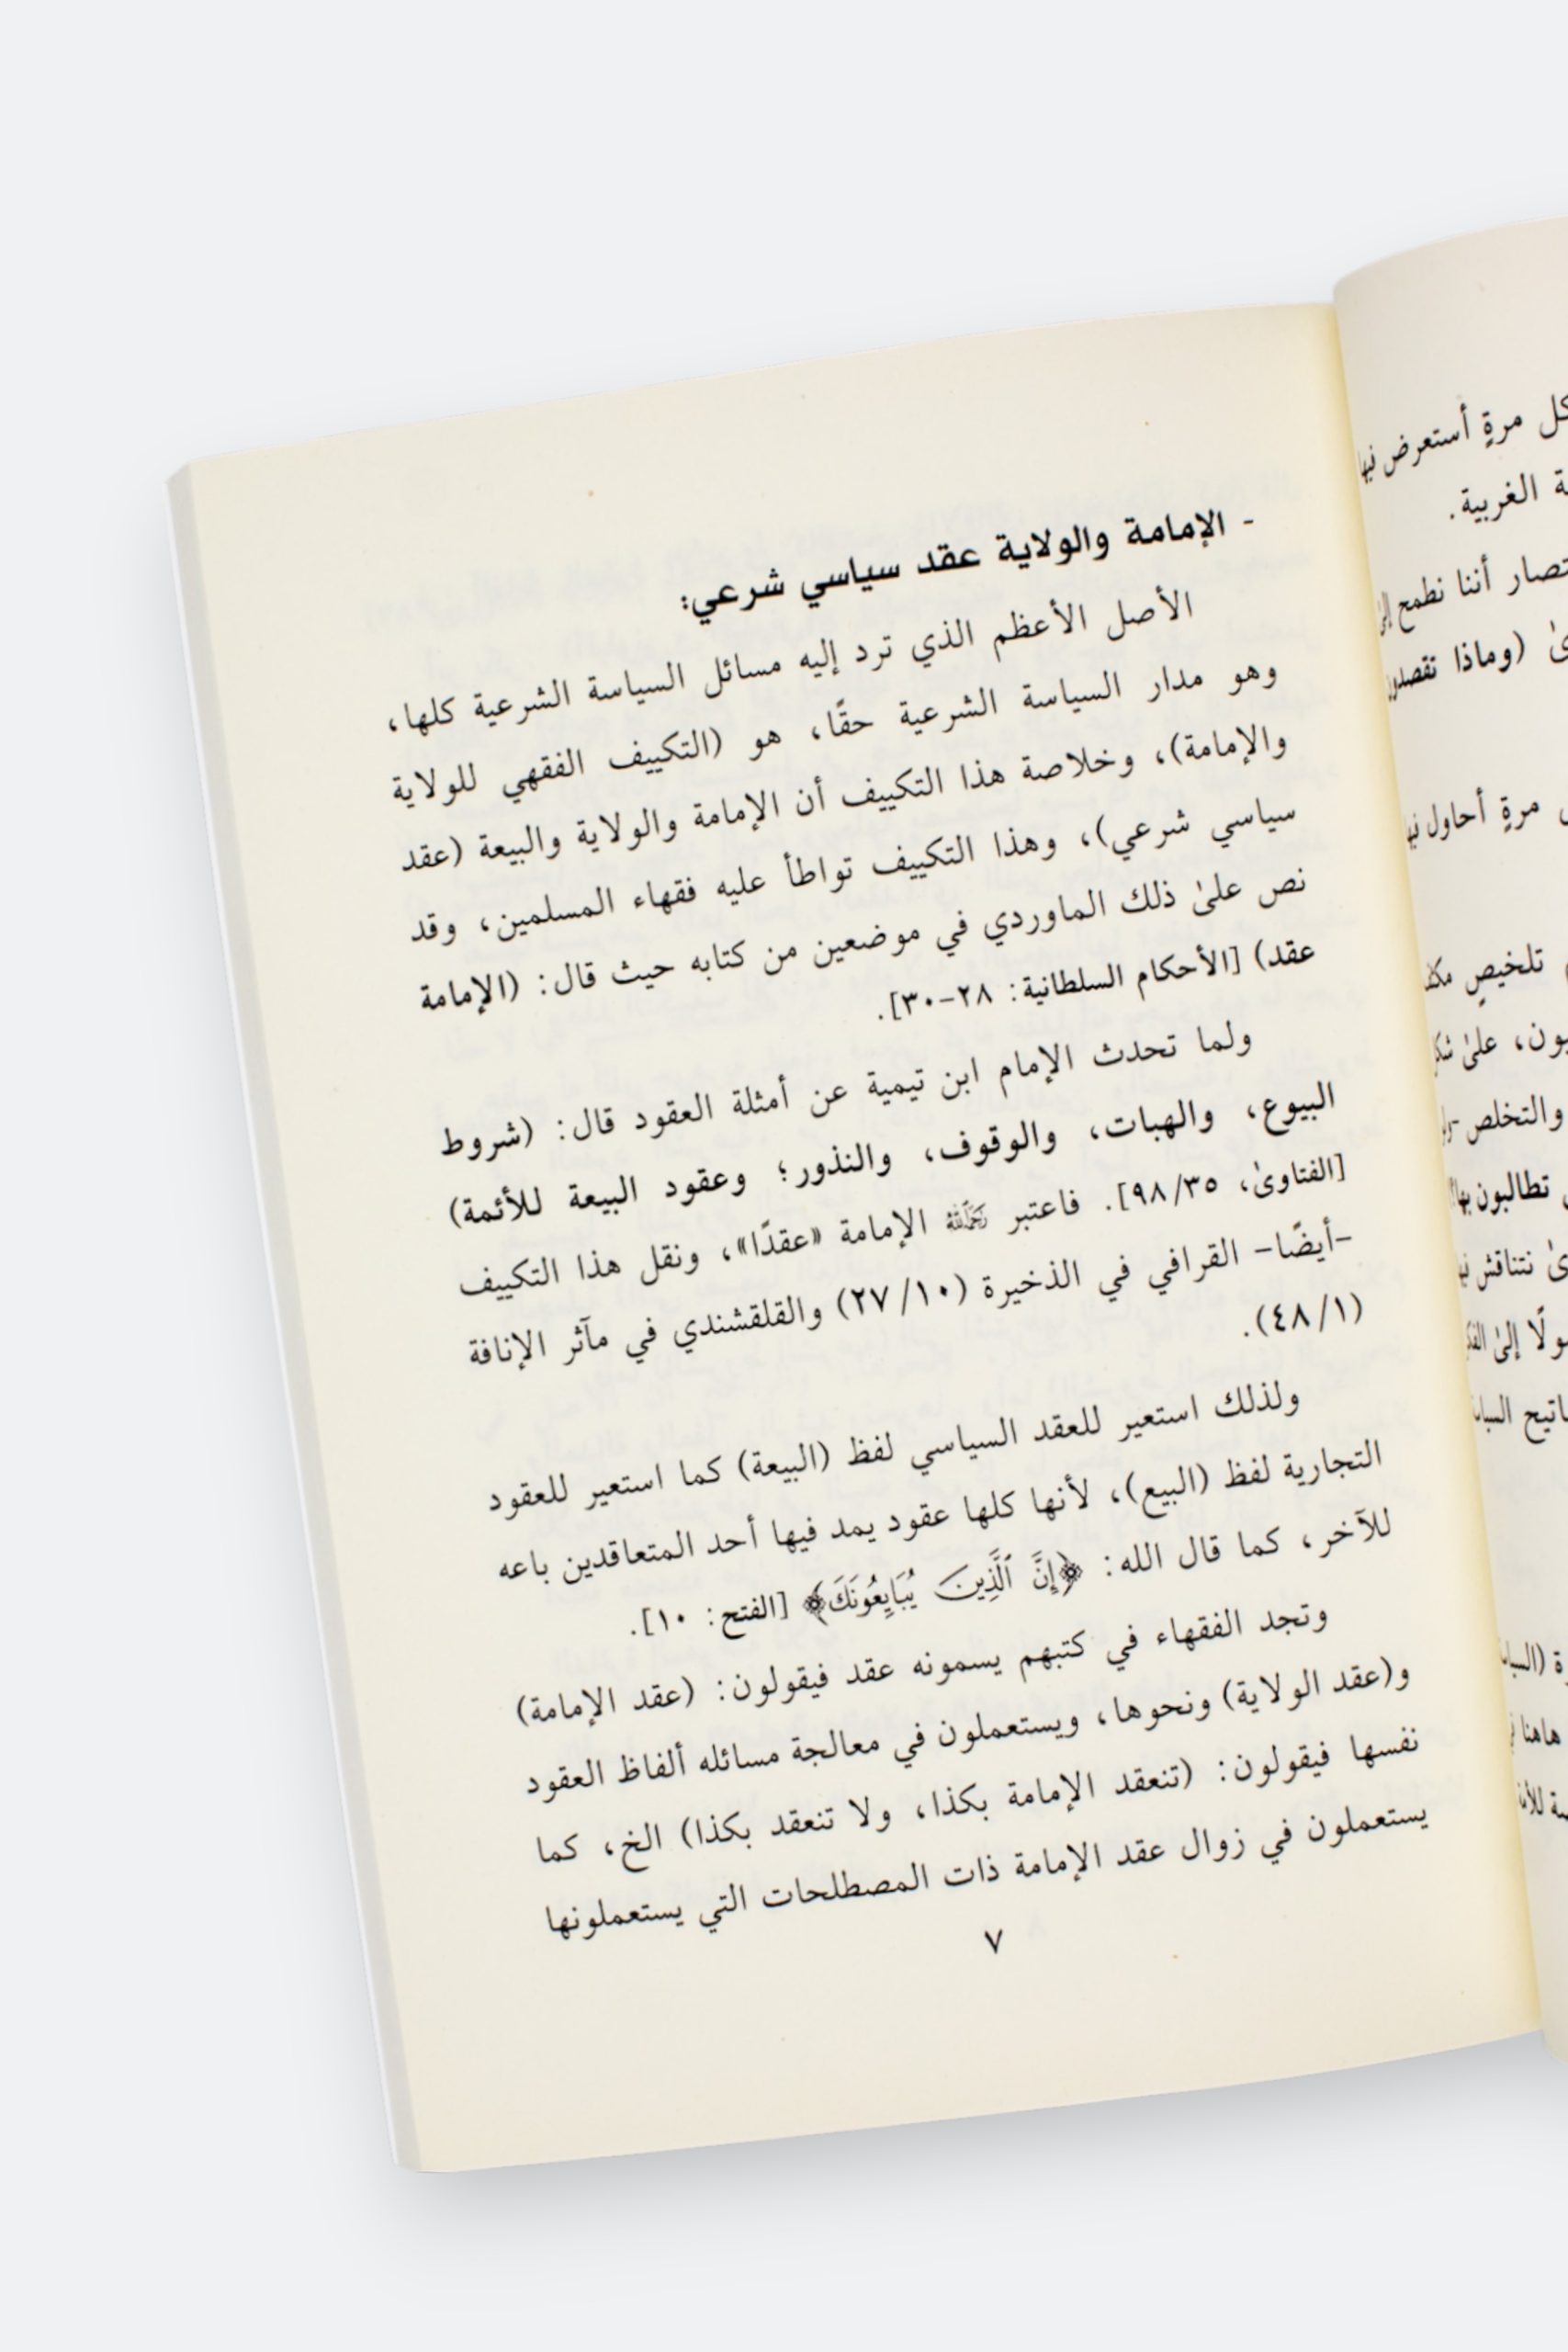 كل مرةٍ أستعرض فيها
الغربية.
أننا نطمح إلىٰ
(وماذا تقصدون
مرةٍ أحاول فيها
تلخيصٍ
علىٰ
والتخلص
تطالبون بها؟
نتناقش
إلىٰ
هاهنا
- الإمامة والولاية عقد سياسي شرعي:
الأصل الأعظم الذي ترد إليه مسائل السياسة الشرعية كلها،
وهو مدار السياسة الشرعية حقًا، هو (التكييف الفقهي للولاية
والإمامة)، وخلاصة هذا التكييف أن الإمامة والولاية والبيعة (عقد
سياسي شرعي)، وهذا التكييف تواطأ عليه فقهاء المسلمين، وقد
نص علىٰ ذلك الماوردي في موضعين من كتابه حيث قال: (الإمامة
عقد) [الأحكام السلطانية: ٢٨-٣٠].
ولما تحدث الإمام ابن تيمية عن أمثلة العقود قال: (شروط
البيوع، والهبات، والوقوف، والنذور؛ وعقود البيعة للأئمة)
[الفتاوىٰ، ٩٨/٣٥]. فاعتبر رحمه الله الإمامة «عقدًا»، ونقل هذا التكييف
-أيضًا- القرافي في الذخيرة (٢٧/١٠) والقلقشندي في مآثر الإنافة
(٤٨/١).
ولذلك استعير للعقد السياسي لفظ (البيعة) كما استعير للعقود
التجارية لفظ (البيع)، لأنها كلها عقود يمد فيها أحد المتعاقدين باعه
للآخر، كما قال الله: ﴿إِنَّ ٱلَّذِينَ يُبَايِعُونَكَ﴾ [الفتح: ١٠].
وتجد الفقهاء في كتبهم يسمونه عقد فيقولون: (عقد الإمامة)
و(عقد الولاية) ونحوها، ويستعملون في معالجة مسائله ألفاظ العقود
نفسها فيقولون: (تنعقد الإمامة بكذا، ولا تنعقد بكذا) الخ، كما
يستعملون في زوال عقد الإمامة ذات المصطلحات التي يستعملونها
٧